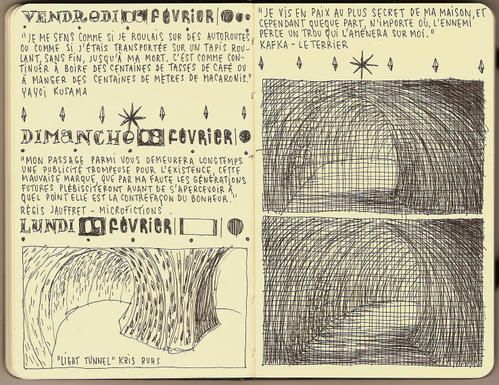 VENDREDI FÉVRIER
"JE ME SENS COMME SI JE ROULAIS SUR DES AUTOROUTES
OU COMME SI J'ÉTAIS TRANSPORTÉE SUR UN TAPIS ROU-
LANT, SANS FIN, JUSQU'À MA MORT. C'EST COMME CON-
TINUER À BOIRE DES CENTAINES DE TASSES DE CAFÉ OU
À MANGER DES CENTAINES DE MÈTRES DE MACARONIS."
YAYOÏ KUSAMA
DIMANCHE FÉVRIER
"MON PASSAGE PARMI VOUS DEMEURERA LONGTEMPS
UNE PUBLICITÉ TROMPEUSE POUR L'EXISTENCE, CETTE
MAUVAISE MARQUE, QUE PAR MA FAUTE LES GÉNÉRATIONS
FUTURES PLÉBISCITERONT AVANT DE S'APERCEVOIR À
QUEL POINT ELLE EST LA CONTREFAÇON DU BONHEUR."
RÉGIS JAUFFRET - MICROFICTIONS.
LUNDI FÉVRIER
"LIGHT TUNNEL" KRIS RUHS
"JE VIS EN PAIX AU PLUS SECRET DE MA MAISON, ET
CEPENDANT QUELQUE PART, N'IMPORTE OÙ, L'ENNEMI
PERCE UN TROU QUI L'AMÈNERA SUR MOI."
KAFKA - LE TERRIER